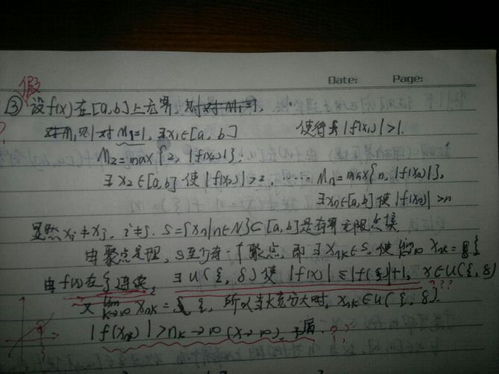 假
Date: Page:
③ 设f(x)在[a,b]上无界,
对M₁=1, ∃x₁∈[a,b] 使得 |f(x₁)|>1.
M₂=max{2, |f(x₁)|},
∃x₂∈[a,b] 使 |f(x₂)|>2, …… Mₙ=max{n,
∃xₙ∈[a,b] 使 |f(xₙ)|>n
显然 xᵢ≠xⱼ, i≠j. S={xₙ|n∈N}⊂[a,b] 是有界无限点集
由聚点定理, S至少有一个聚点, 即 ∃xₙₖ∈S, 使 lim xₙₖ=ξ
由f(x)在ξ连续, ∃U(ξ,δ) 使 |f(x)|≤|f(ξ)|+1, x∈U(ξ,δ)
又 lim xₙₖ=ξ, 所以当k充分大时, xₙₖ∈U(ξ,δ). ???
|f(xₙₖ)|>nₖ→∞ 矛盾. ??